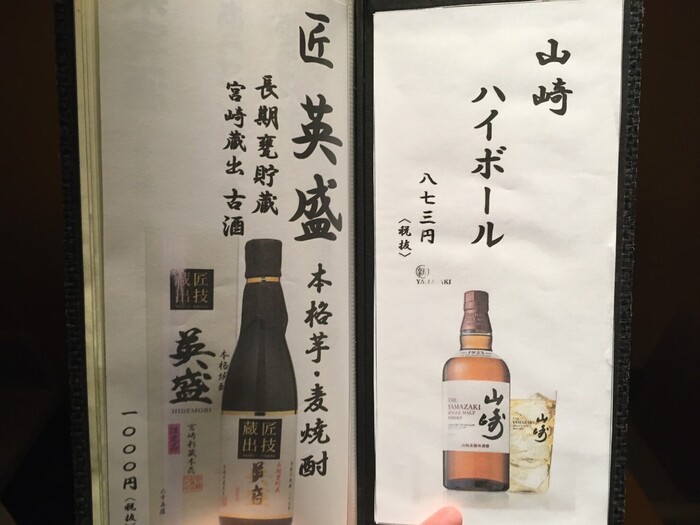 山崎
ハイボール
八七三円
〈税抜〉
YAMAZAKI
THE
YAMAZAKI
SINGLE MALT
WHISKY
山崎
山崎
匠 英盛 本格芋・麦焼酎
長期甕貯蔵
宮崎蔵出 古酒
一〇〇〇円〈税抜
匠技
蔵出
英盛
HIDEMORI
本格焼酎
匠技
蔵出
英盛